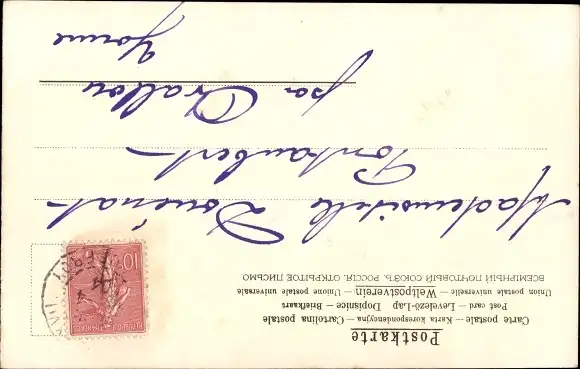 Postkarte
Carte postale — Karta korespondencyjna — Cartolina postale
Post card — Levelező-Lap — Dopisnice — Briefkaart
Union postale universelle — Weltpostverein — Unione postale universale
ВСЕМІРНЫЙ ПОЧТОВЫЙ СОЮЗЪ. РОССІЯ. ОТКРЫТОЕ ПИСЬМО
10
Mademoiselle
Pontaubert
par Avallon
Yonne